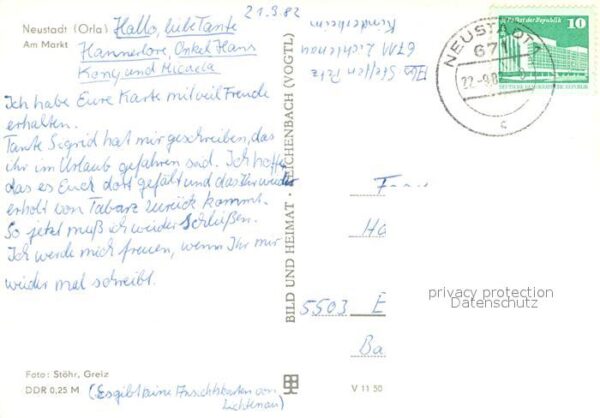 Neustadt (Orla)
Am Markt
21.3.82
Hallo, liebe Tante
Hannerlore, Onkel Hans
Kony und Micada
Ich habe Eure Karte mit veil Freude
erhalten.
Tante Sigrid hat mir geschreiben, das
ihr im Urlaub gefahren seid. Ich hoffe
das es Euch dort gefält und das Ihr wieder
erholt von Tabarz zurück kommt.
So jetzt muß ich wieder Schließen.
Ich werde mich freuen, wenn Ihr mir
wieder mal schreibt.
Foto: Stöhr, Greiz
DDR 0,25 M
(Es gibt keine Ansichtskarten von
Lichtenau)
BILD UND HEIMAT REICHENBACH (VOGTL)
V 11 50
Abs Steffen
6711 Lichtenau
Kinderheim
NEUSTADT 1
671
22.-9.8
c
Palast der Republik
10
DEUTSCHE DEMOKRATISCHE REPUBLIK
Fa
Ha
5503 E
Ba
privacy protection
Datenschutz